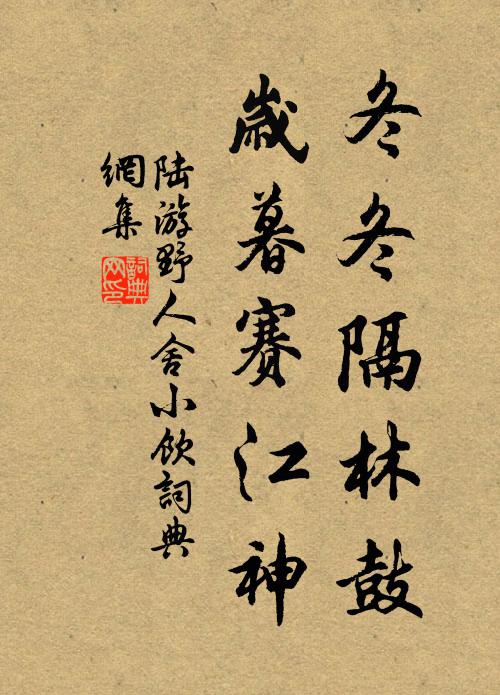 冬冬隔林鼓
歲暮賽江神
陆游野人舍小飲詞典
網集
詞典
网印